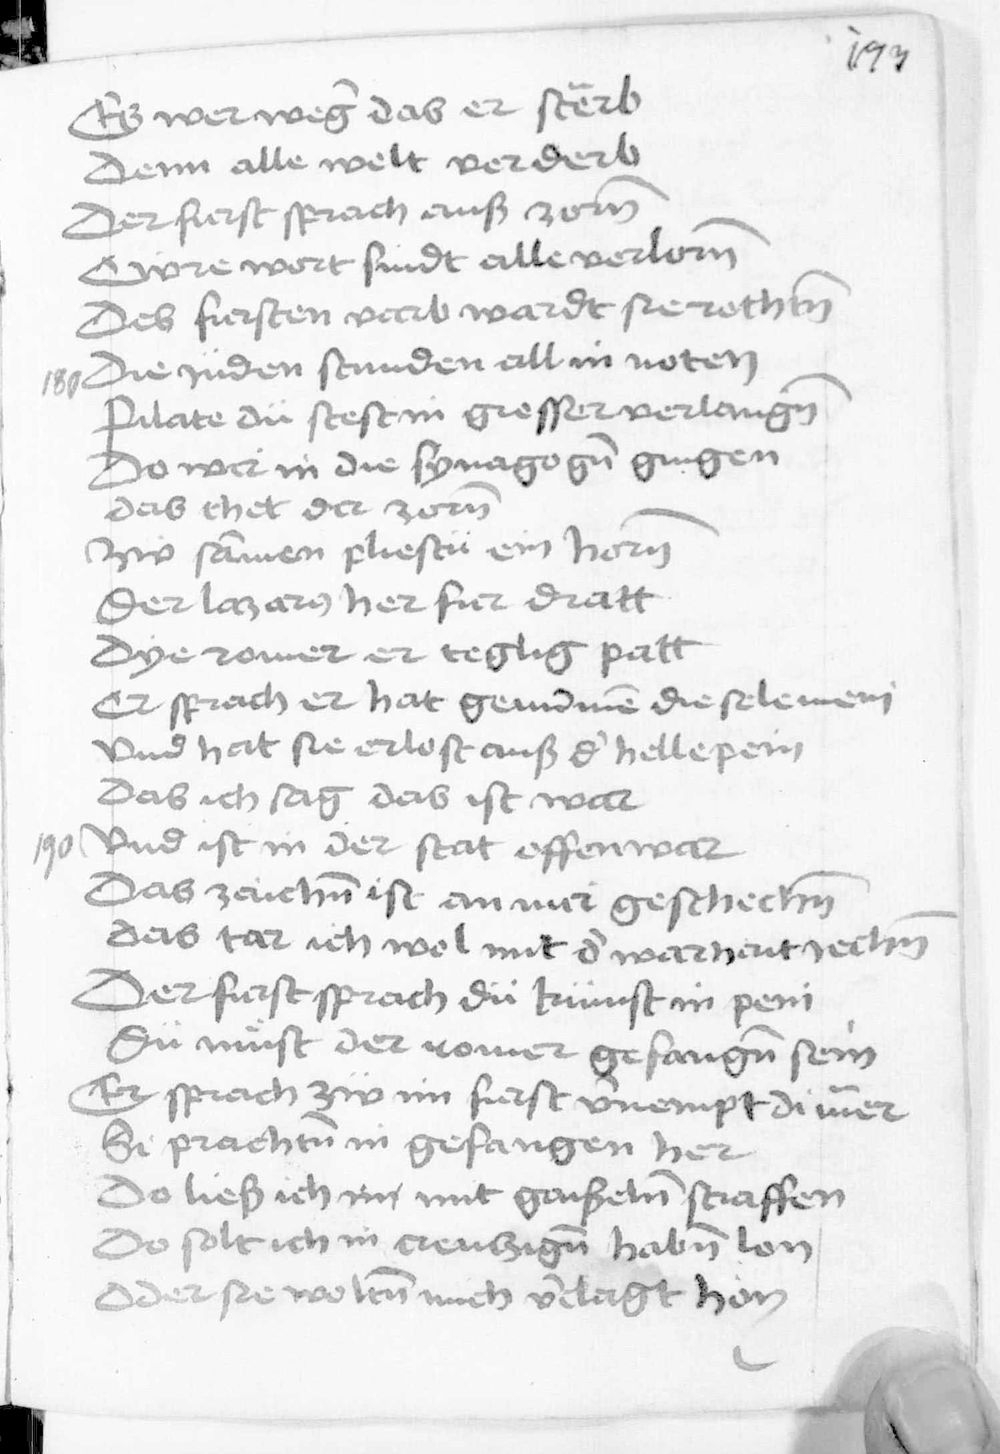 193
Es wer weg̃ das er sterb
Denn alle welt verderb
Der furst sprach auß zorn̄
Ewre wort sindt alle verlorn̄
Des fursten varb wardt sie rothtn̄
180 Die juden stunden all in noten
Pilate dü stest in grosser verlangn̄
Do wir in die synagogn̄ gingen
das thet der zorn̄
Zw sam̄en pliestü ein horn̄
Der lazarus her fur dratt
Dye romer er teglig patt
Er sprach er hat genūmē die sele mein
Vnd hat sie erlost auß d' helle pein
Das ich sag das ist war
190 Vnd ist in der stat offenwar
Das zaichn̄ ist an mir geschechn̄
das tar ich wol mit d' warhait jechn̄
Der furst sprach dü kümst in pein
Dü müst der romer gefangn̄ sein
Er sprach zw im furst v'nempt di mer
Si prachtn̄ in gefangen her
Do ließ ich in mit gaißeln̄ straffen
Do solt ich in creutzign̄ habn̄ lon
Oder sie woltn̄ mich v'clagt hon